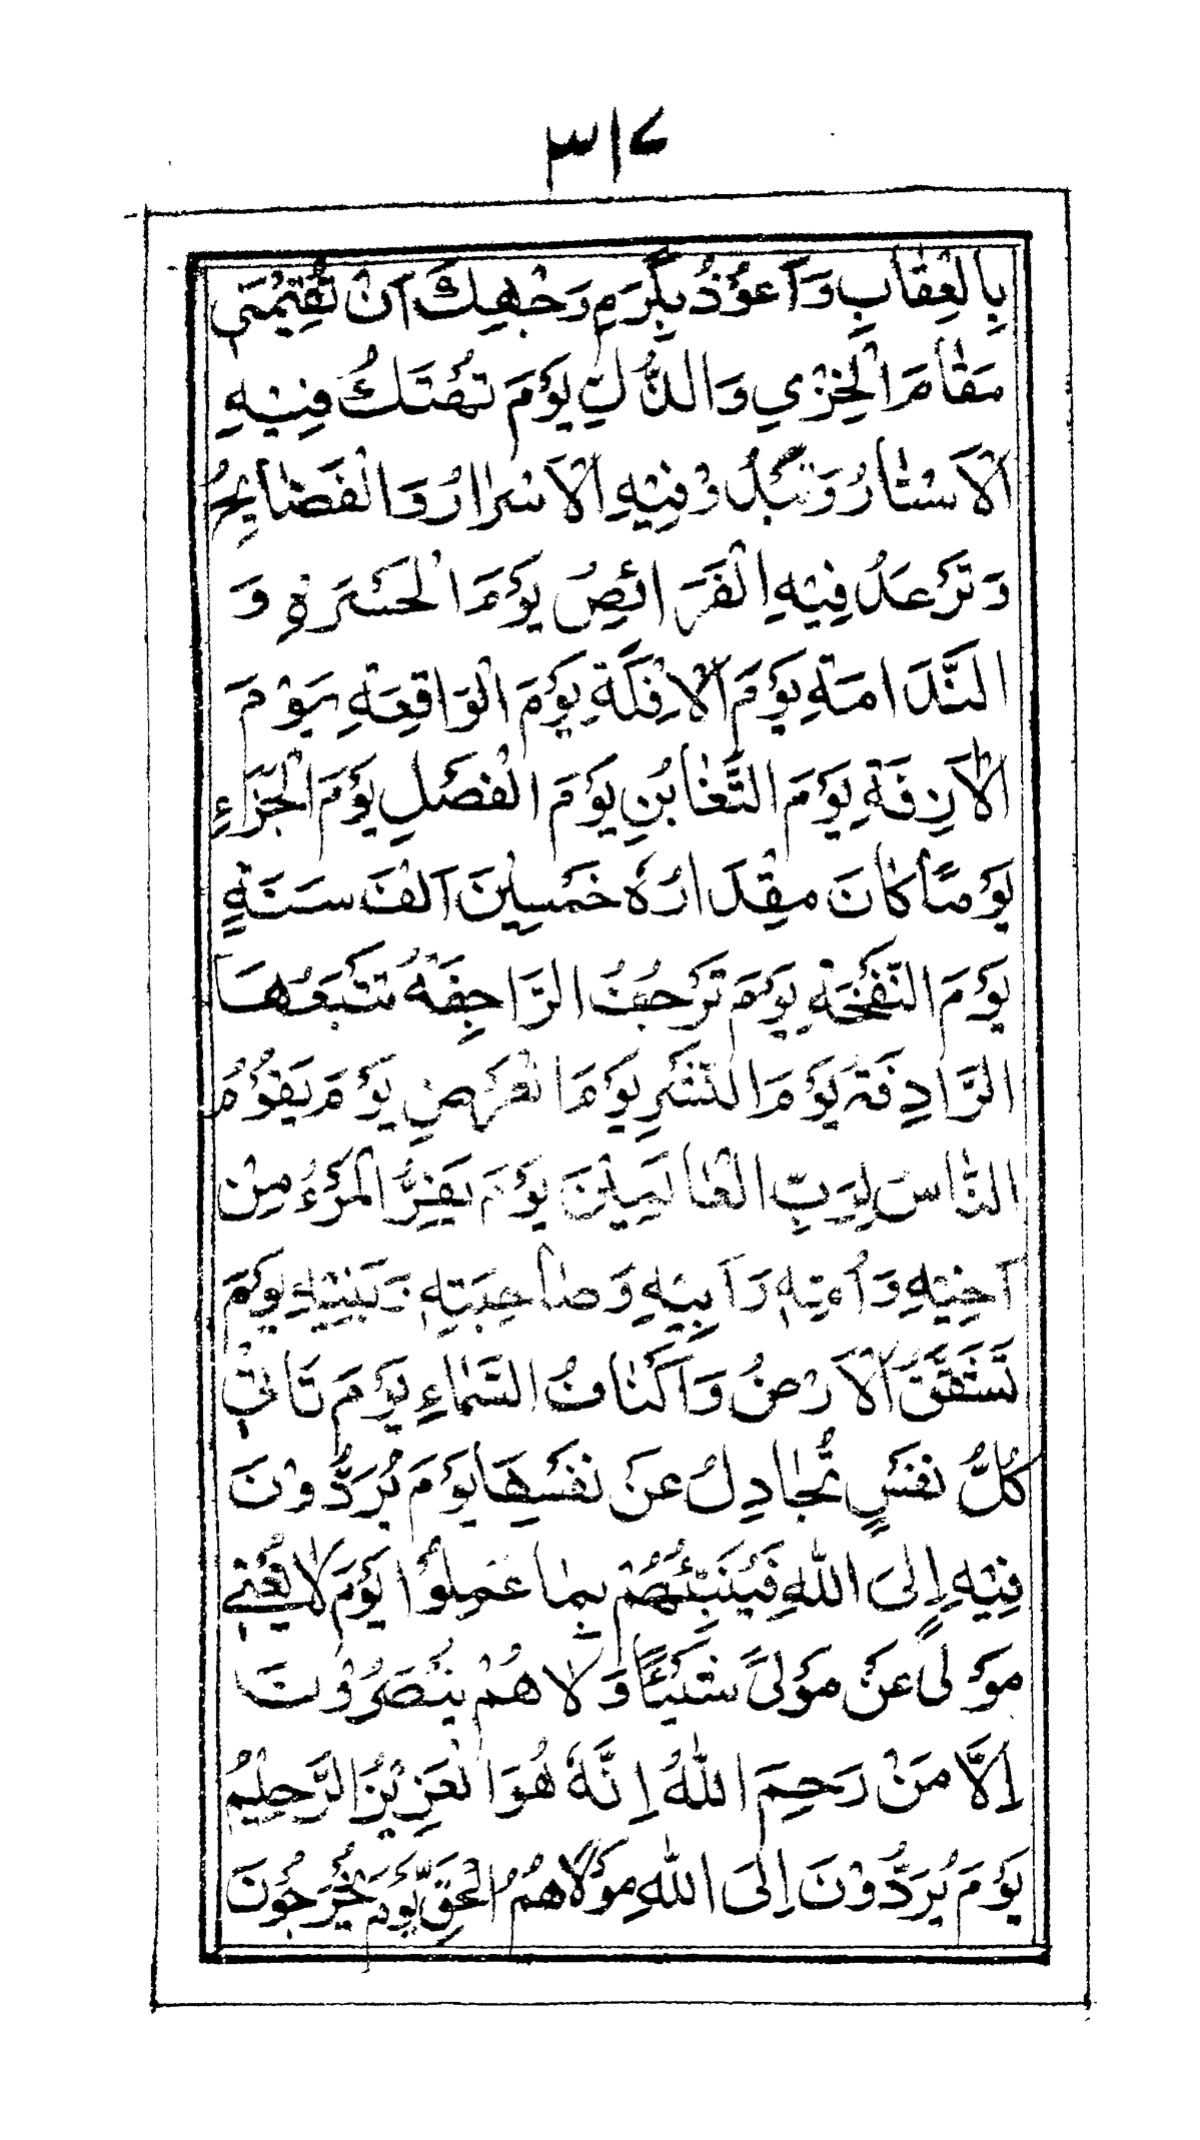 ٣١٧
بِالْعِقَابِ وَاَعُوْذُ بِكَرَمِ وَجْهِكَ اَنْ تُقِيْمَنِيْ
مَقَامَ الْخِزْيِ وَالذُّلِّ يَوْمَ تُهْتَكُ فِيْهِ
الْاَسْتَارُ وَتَبْدُوْ فِيْهِ الْاَسْرَارُ وَالْفَضَايِحُ
وَتَرْعَدُ فِيْهِ الْفَرَائِصُ يَوْمَ الْحَسْرَةِ وَ
النَّدَامَةِ يَوْمَ الْاٰفِكَةِ يَوْمَ الْوَاقِعَةِ يَوْمَ
الْاٰزِفَةِ يَوْمَ التَّغَابُنِ يَوْمَ الْفَصْلِ يَوْمَ الْجَزَاءِ
يَوْمًا كَانَ مِقْدَارُهٗ خَمْسِيْنَ اَلْفَ سَنَةٍ
يَوْمَ النَّفْخَةِ يَوْمَ تَرْجُفُ الرَّاجِفَةُ تَتْبَعُهَا
الرَّادِفَةُ يَوْمَ النَّشْرِ يَوْمَ الْعَرْضِ يَوْمَ يَقُوْمُ
النَّاسُ لِرَبِّ الْعَالَمِيْنَ يَوْمَ يَفِرُّ الْمَرْءُ مِنْ
اَخِيْهِ وَاُمِّهٖ وَاَبِيْهِ وَصَاحِبَتِهٖ وَبَنِيْهِ يَوْمَ
تَشَقَّقُ الْاَرْضُ وَاَكْنَافُ السَّمَاءِ يَوْمَ تَاْتِيْ
كُلُّ نَفْسٍ تُجَادِلُ عَنْ نَفْسِهَا يَوْمَ يُرَدُّوْنَ
فِيْهِ اِلَى اللّٰهِ فَيُنَبِّئُهُمْ بِمَا عَمِلُوْا يَوْمَ لَا يُغْنِيْ
مَوْلًى عَنْ مَوْلًى شَيْئًا وَلَا هُمْ يُنْصَرُوْنَ
اِلَّا مَنْ رَحِمَ اللّٰهُ اِنَّهٗ هُوَ الْعَزِيْزُ الرَّحِيْمُ
يَوْمَ يُرَدُّوْنَ اِلَى اللّٰهِ مَوْلَاهُمُ الْحَقِّ يَوْمَ يَخْرُجُوْنَ